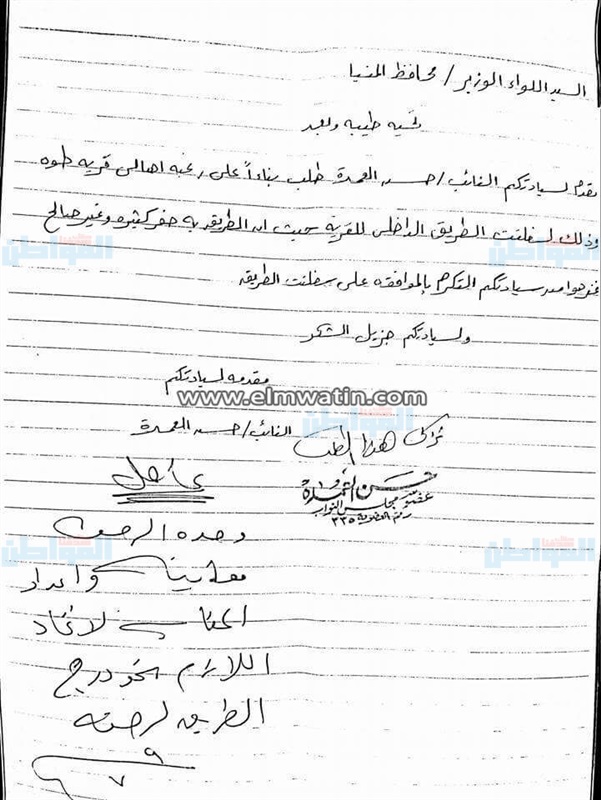 السيد اللواء الوزير / محافظ المنيا
تحيه طيبه وبعد
نقدم لسيادتكم النائب / حسن العمدة طلب بناءاً على رغبه اهالى قريه طوه
وذلك لسفلتت الطريق الداخلى للقرية حيث ان الطريق به حفر كثيره وغير صالح
نرجوا من سيادتكم التكرم بالموافقه على سفلتت الطريق
ولسيادتكم جزيل الشكر
مقدمه لسيادتكم
www.elmwatin.com
النائب / حسن العمدة
نزكى هذا الطلب
حسن العمدة
عضو مجلس النواب
رقم العضوية ٣٣٥
عاجل
وحده الرصف
معاينة واعداد
لاتخاذ
اللازم نحو درج
الطريق لرصفه
٩
٧
المواطن
المواطن
المواطن
المواطن
المواطن